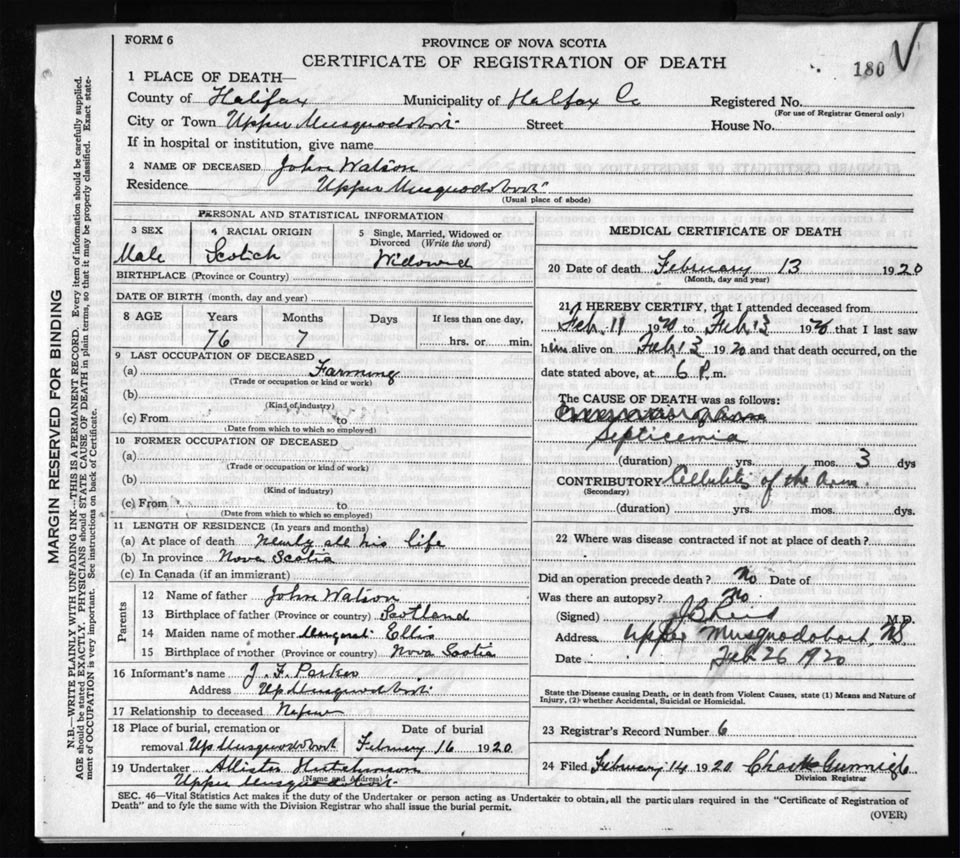 FORM 6
PROVINCE OF NOVA SCOTIA
CERTIFICATE OF REGISTRATION OF DEATH
180
1 PLACE OF DEATH—
County of Halifax Municipality of Halfax Co Registered No.
(For use of Registrar General only)
City or Town Upper Musquodoboit Street House No.
If in hospital or institution, give name
2 NAME OF DECEASED John Watson
Residence Upper Musquodoboit
(Usual place of abode)
PERSONAL AND STATISTICAL INFORMATION
3 SEX 4 RACIAL ORIGIN 5 Single, Married, Widowed or Divorced (Write the word)
Male Scotich Widowed
BIRTHPLACE (Province or Country)
DATE OF BIRTH (month, day and year)
8 AGE Years Months Days If less than one day,
76 7 hrs. or min.
9 LAST OCCUPATION OF DECEASED
(a) Farming
(Trade or occupation or kind or work)
(b)
(Kind of industry)
(c) From to
(Date from which to which so employed)
10 FORMER OCCUPATION OF DECEASED
(a)
(Trade or occupation or kind of work)
(b)
(Kind of industry)
(c) From to
(Date from which to which so employed)
11 LENGTH OF RESIDENCE (In years and months)
(a) At place of death nearly all his life
(b) In province Nova Scotia
(c) In Canada (if an immigrant)
Parents
12 Name of father John Watson
13 Birthplace of father (Province or country) Scotland
14 Maiden name of mother Ellis
15 Birthplace of mother (Province or country) Nova Scotia
16 Informant's name J. F. Parker
Address Up Musquodoboit
17 Relationship to deceased Nephew
18 Place of burial, cremation or removal Up Musquodoboit
Date of burial February 16 1920
19 Undertaker Allister Hutchinson
(Name and Address)
Upper Musquodoboit
MEDICAL CERTIFICATE OF DEATH
20 Date of death February 13 1920
(Month, day and year)
21 I HEREBY CERTIFY, that I attended deceased from
Feb. 11 1920 to Feb 13 1920 that I last saw
him alive on Feb 13 1920 and that death occurred, on the
date stated above, at 6 P. m.
The CAUSE OF DEATH was as follows:
Septicemia
(duration) yrs. mos. 3 dys
CONTRIBUTORY Cellulitis of the Arm.
(Secondary)
(duration) yrs. mos. dys.
22 Where was disease contracted if not at place of death?
Did an operation precede death? No Date of
Was there an autopsy? No
(Signed) M.D.
Address Upper Musquodoboit, N.S.
Date Feb 26 1920
State the Disease causing Death, or in death from Violent Causes, state (1) Means and Nature of
Injury, (2) whether Accidental, Suicidal or Homicidal.
23 Registrar's Record Number 6
24 Filed February 14 1920
Division Registrar
SEC. 46—Vital Statistics Act makes it the duty of the Undertaker or person acting as Undertaker to obtain, all the particulars required in the "Certificate of Registration of
Death" and to fyle the same with the Division Registrar who shall issue the burial permit.
(OVER)
MARGIN RESERVED FOR BINDING
N.B.—WRITE PLAINLY WITH UNFADING INK—THIS IS A PERMANENT RECORD. Every item of information should be carefully supplied.
AGE should be stated EXACTLY. PHYSICIANS should STATE CAUSE OF DEATH in plain terms, so that it may be properly classified. Exact state-
ment of OCCUPATION is very important. See instructions on back of Certificate.